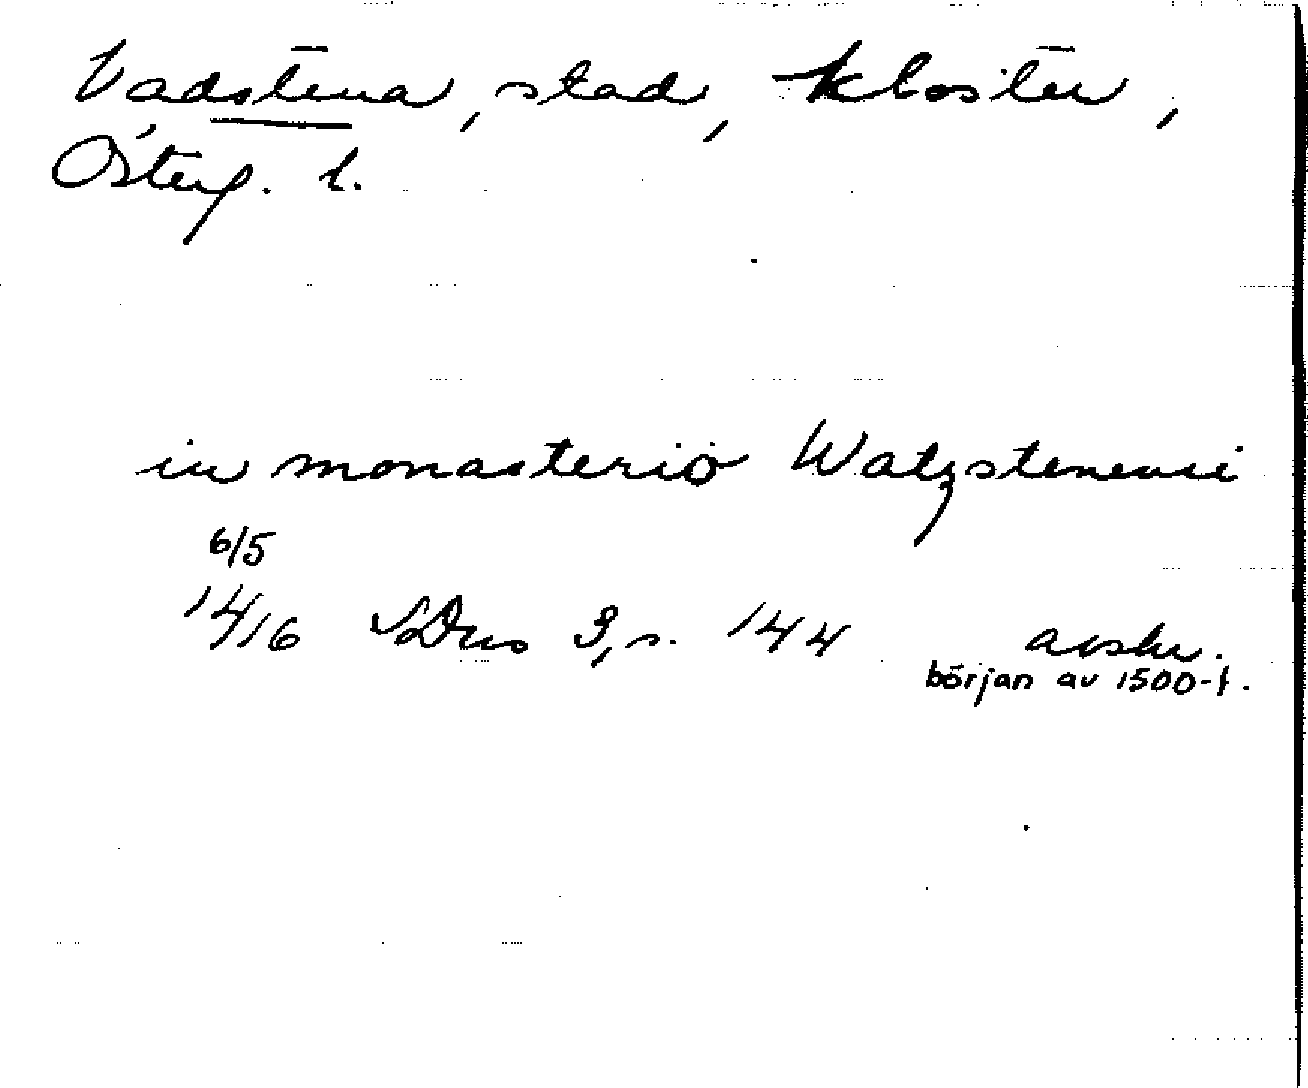 Vadstena, stad, kloster,
Österg. l.
in monasterio Watzstenensi
6/5
1416 SDns 3, s. 144 avskr.
början av 1500-t.